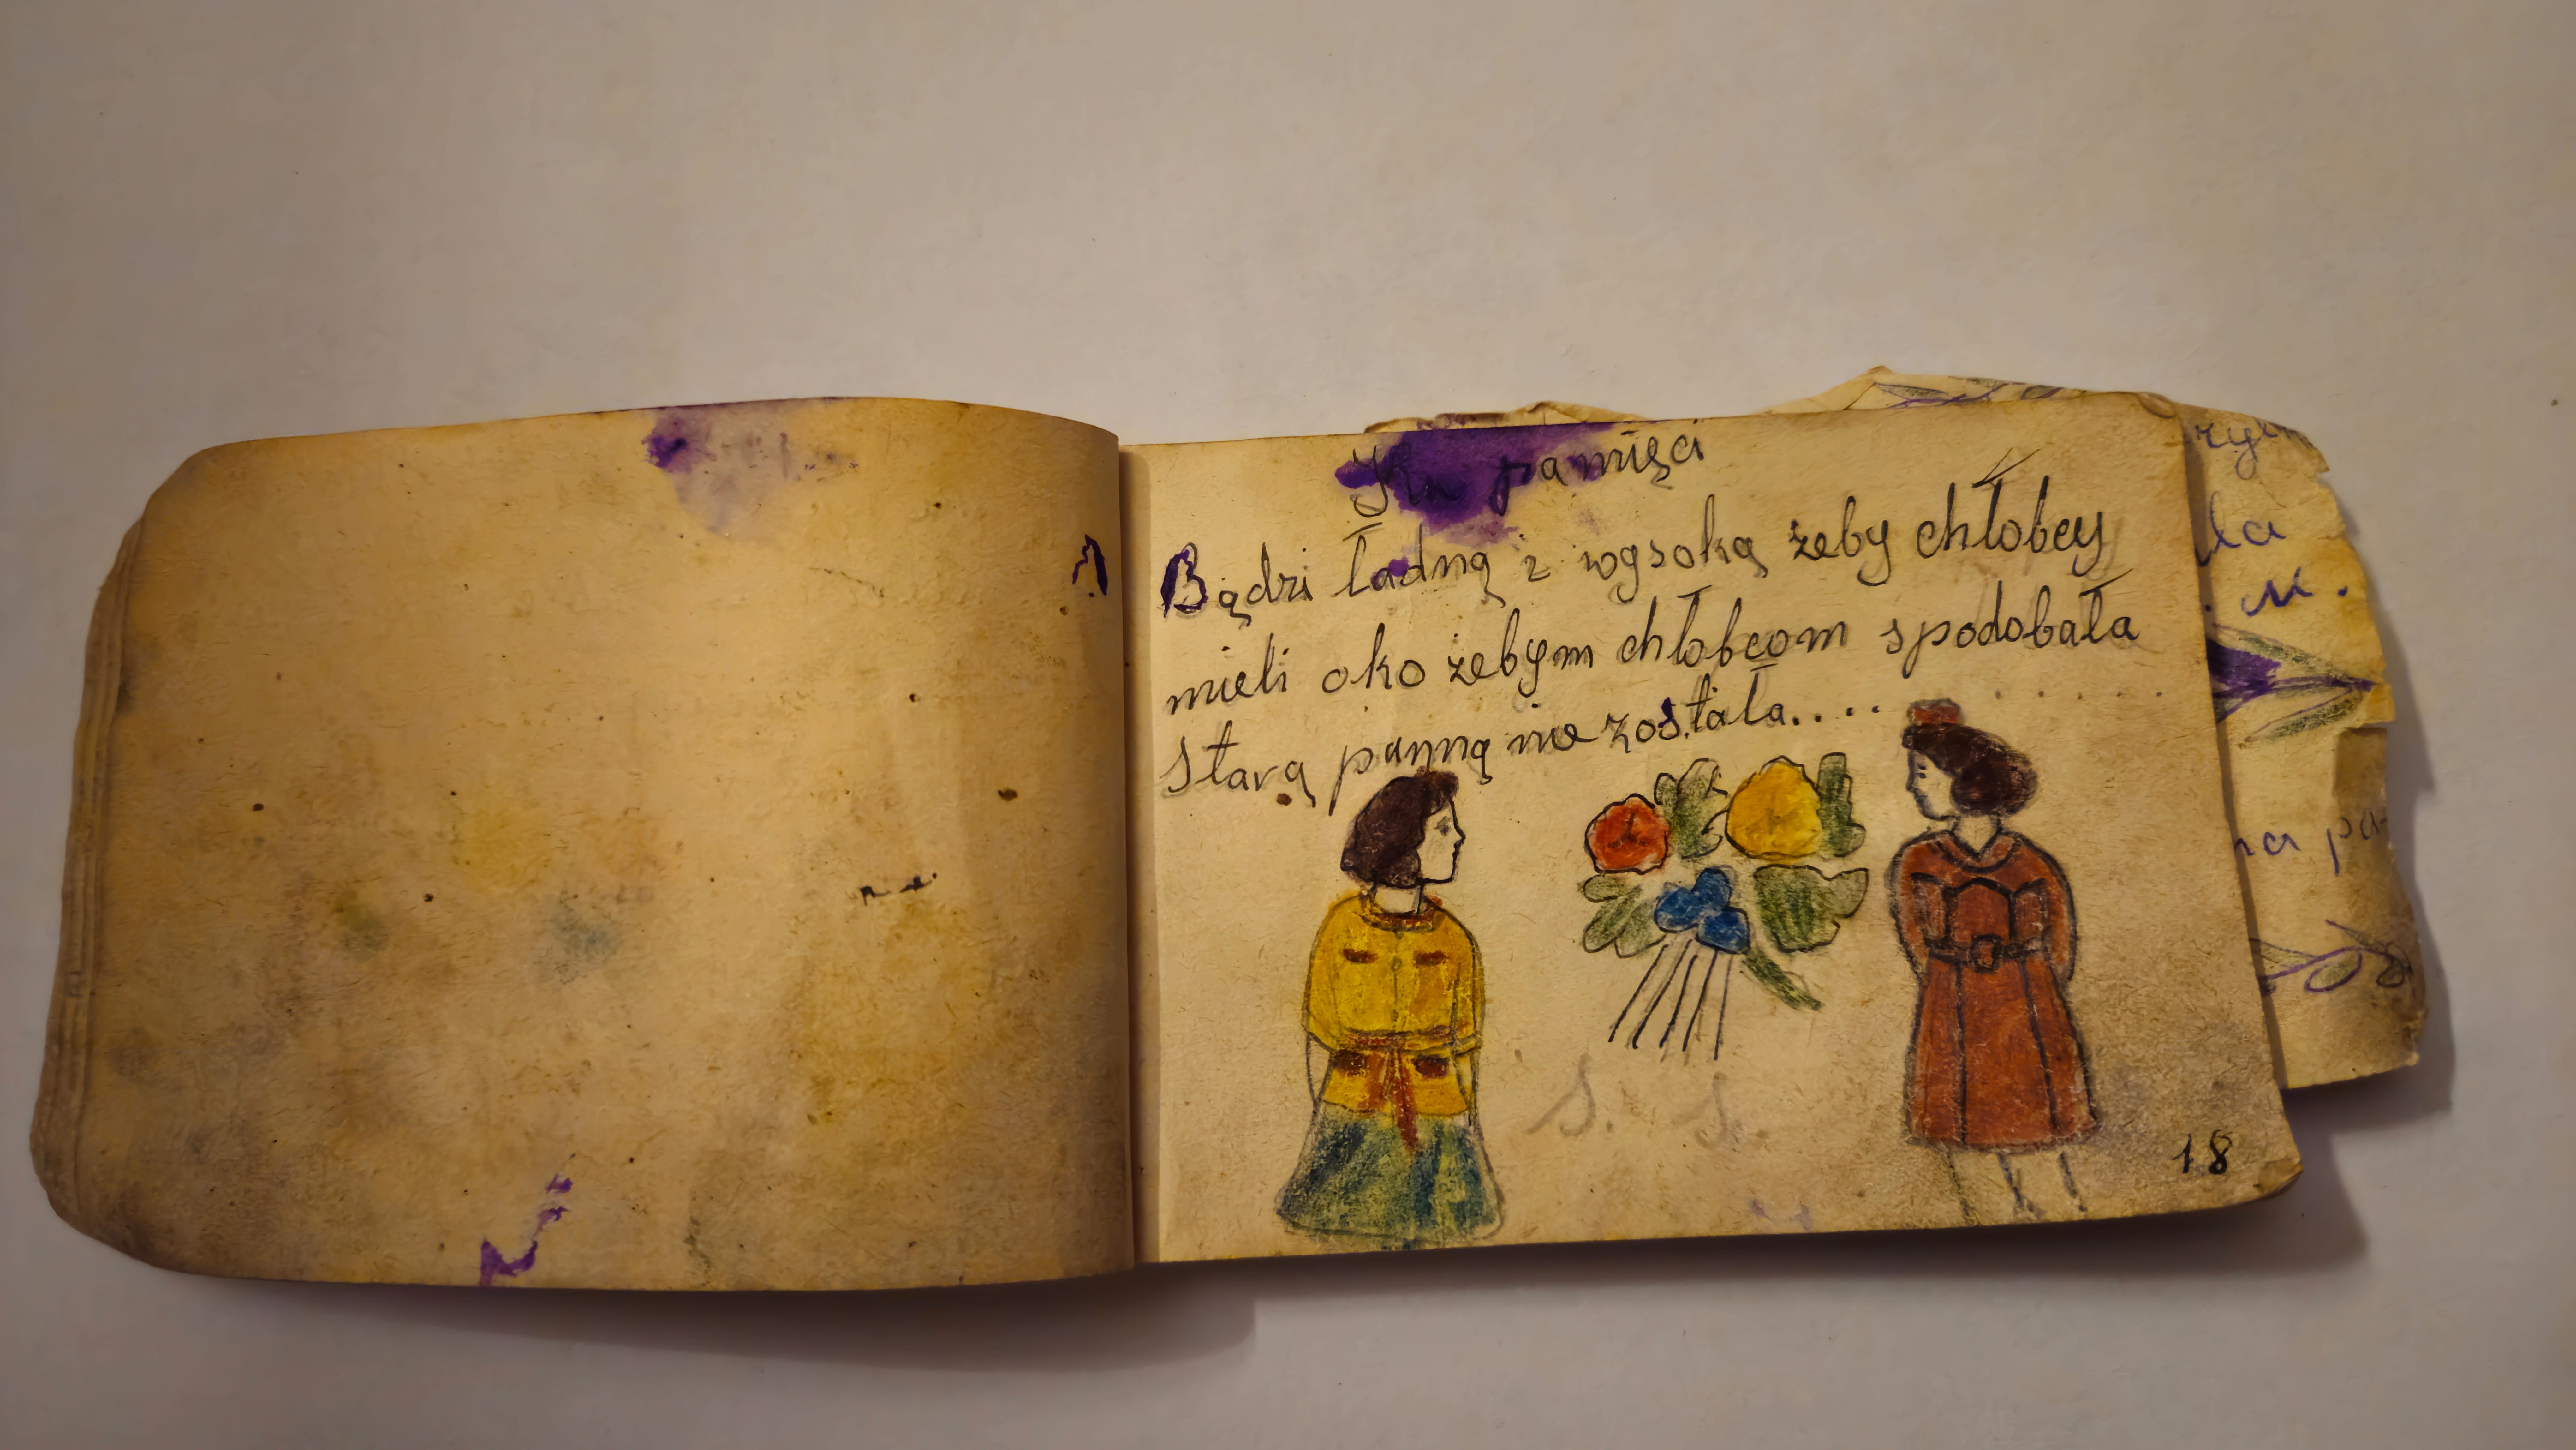 Ku pamięci
Bądzi ładną i wysoką żeby chłobcy
mieli oko żebym chłobcom spodobała
Starą panną nie została....
S. S.
18
ła
na pa-